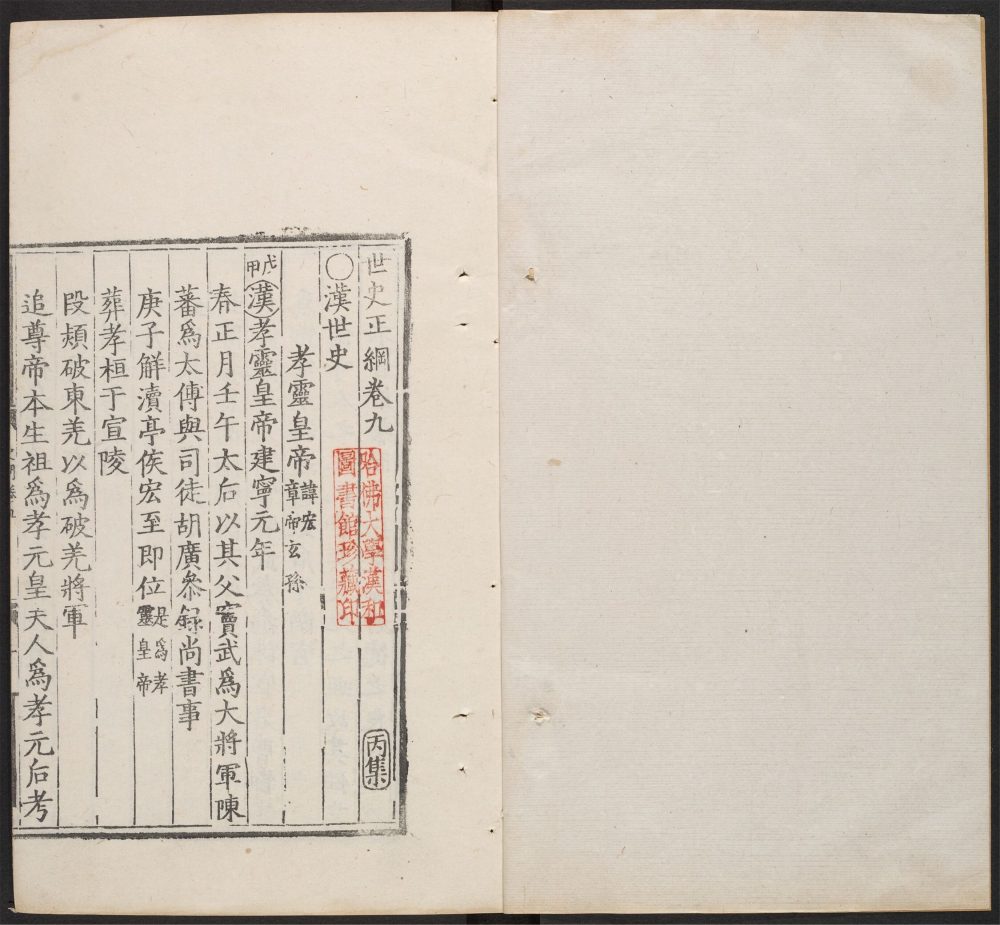 世史正綱卷九 丙集
○漢世史
孝靈皇帝 諱宏 章帝玄孫
戊申 漢 孝靈皇帝建寧元年
春正月壬午太后以其父竇武爲大將軍陳
蕃爲太傅與司徒胡廣叅録尚書事
庚子解瀆亭侯宏至即位 是爲孝 靈皇帝
葬孝桓于宣陵
段熲破東羌以爲破羌將軍
追尊帝本生祖爲孝元皇夫人爲孝元后考
哈佛大學漢和
圖書館珍藏印